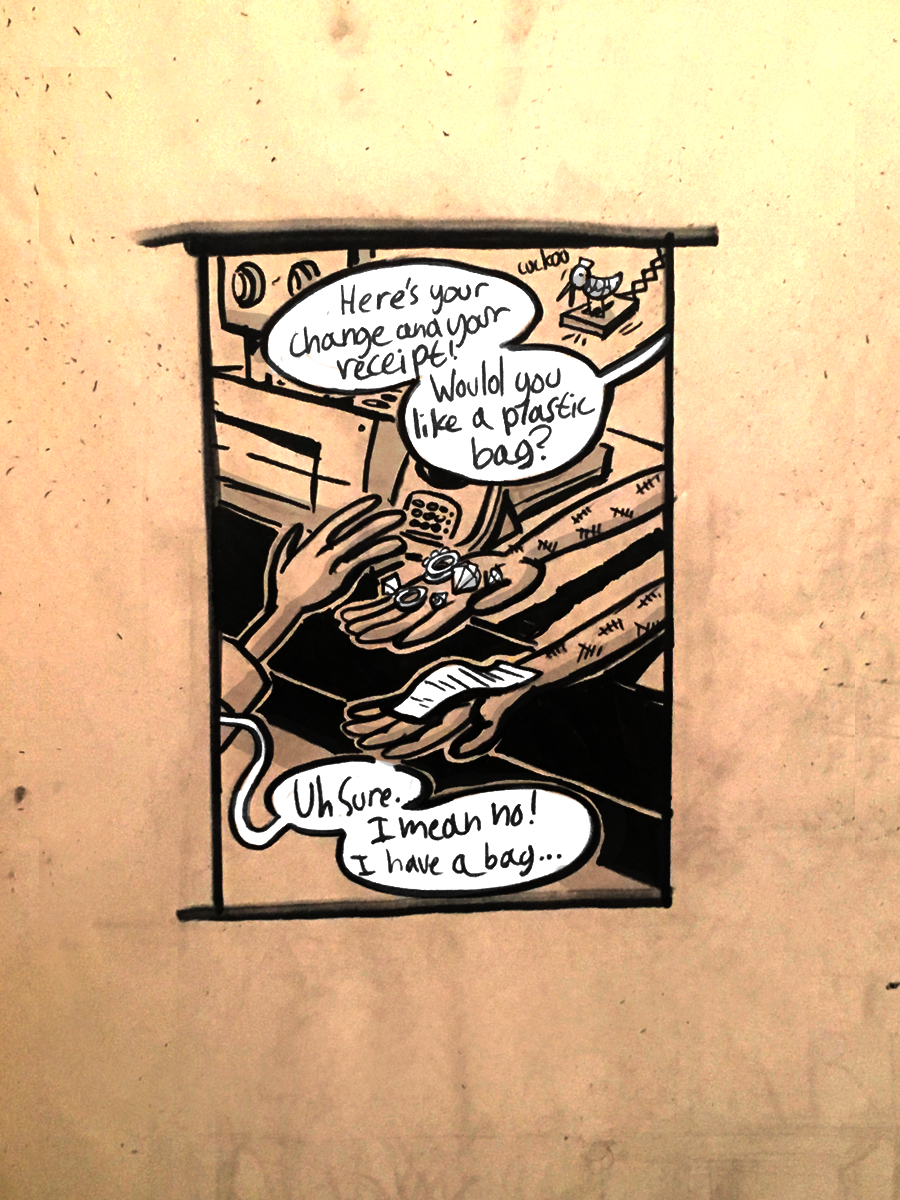 cuckoo
Here's your
change and your
receipt!
Would you
like a plastic
bag?
Uh Sure.
I mean no!
I have a bag...